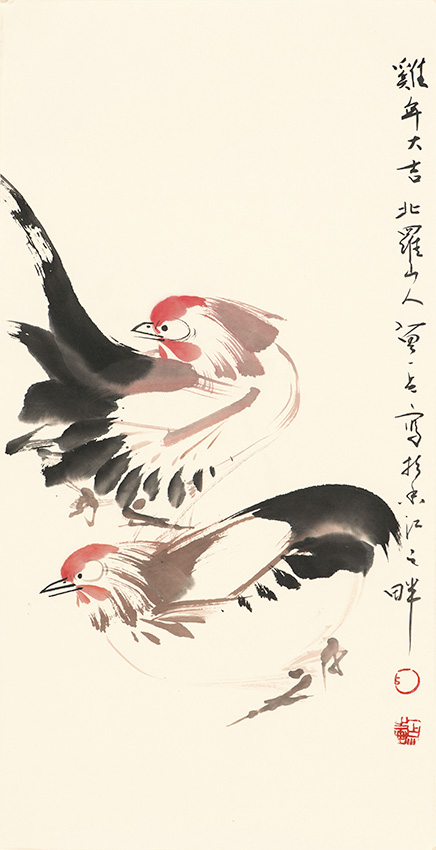 雞年大吉北羅山人一寫於香江之畔